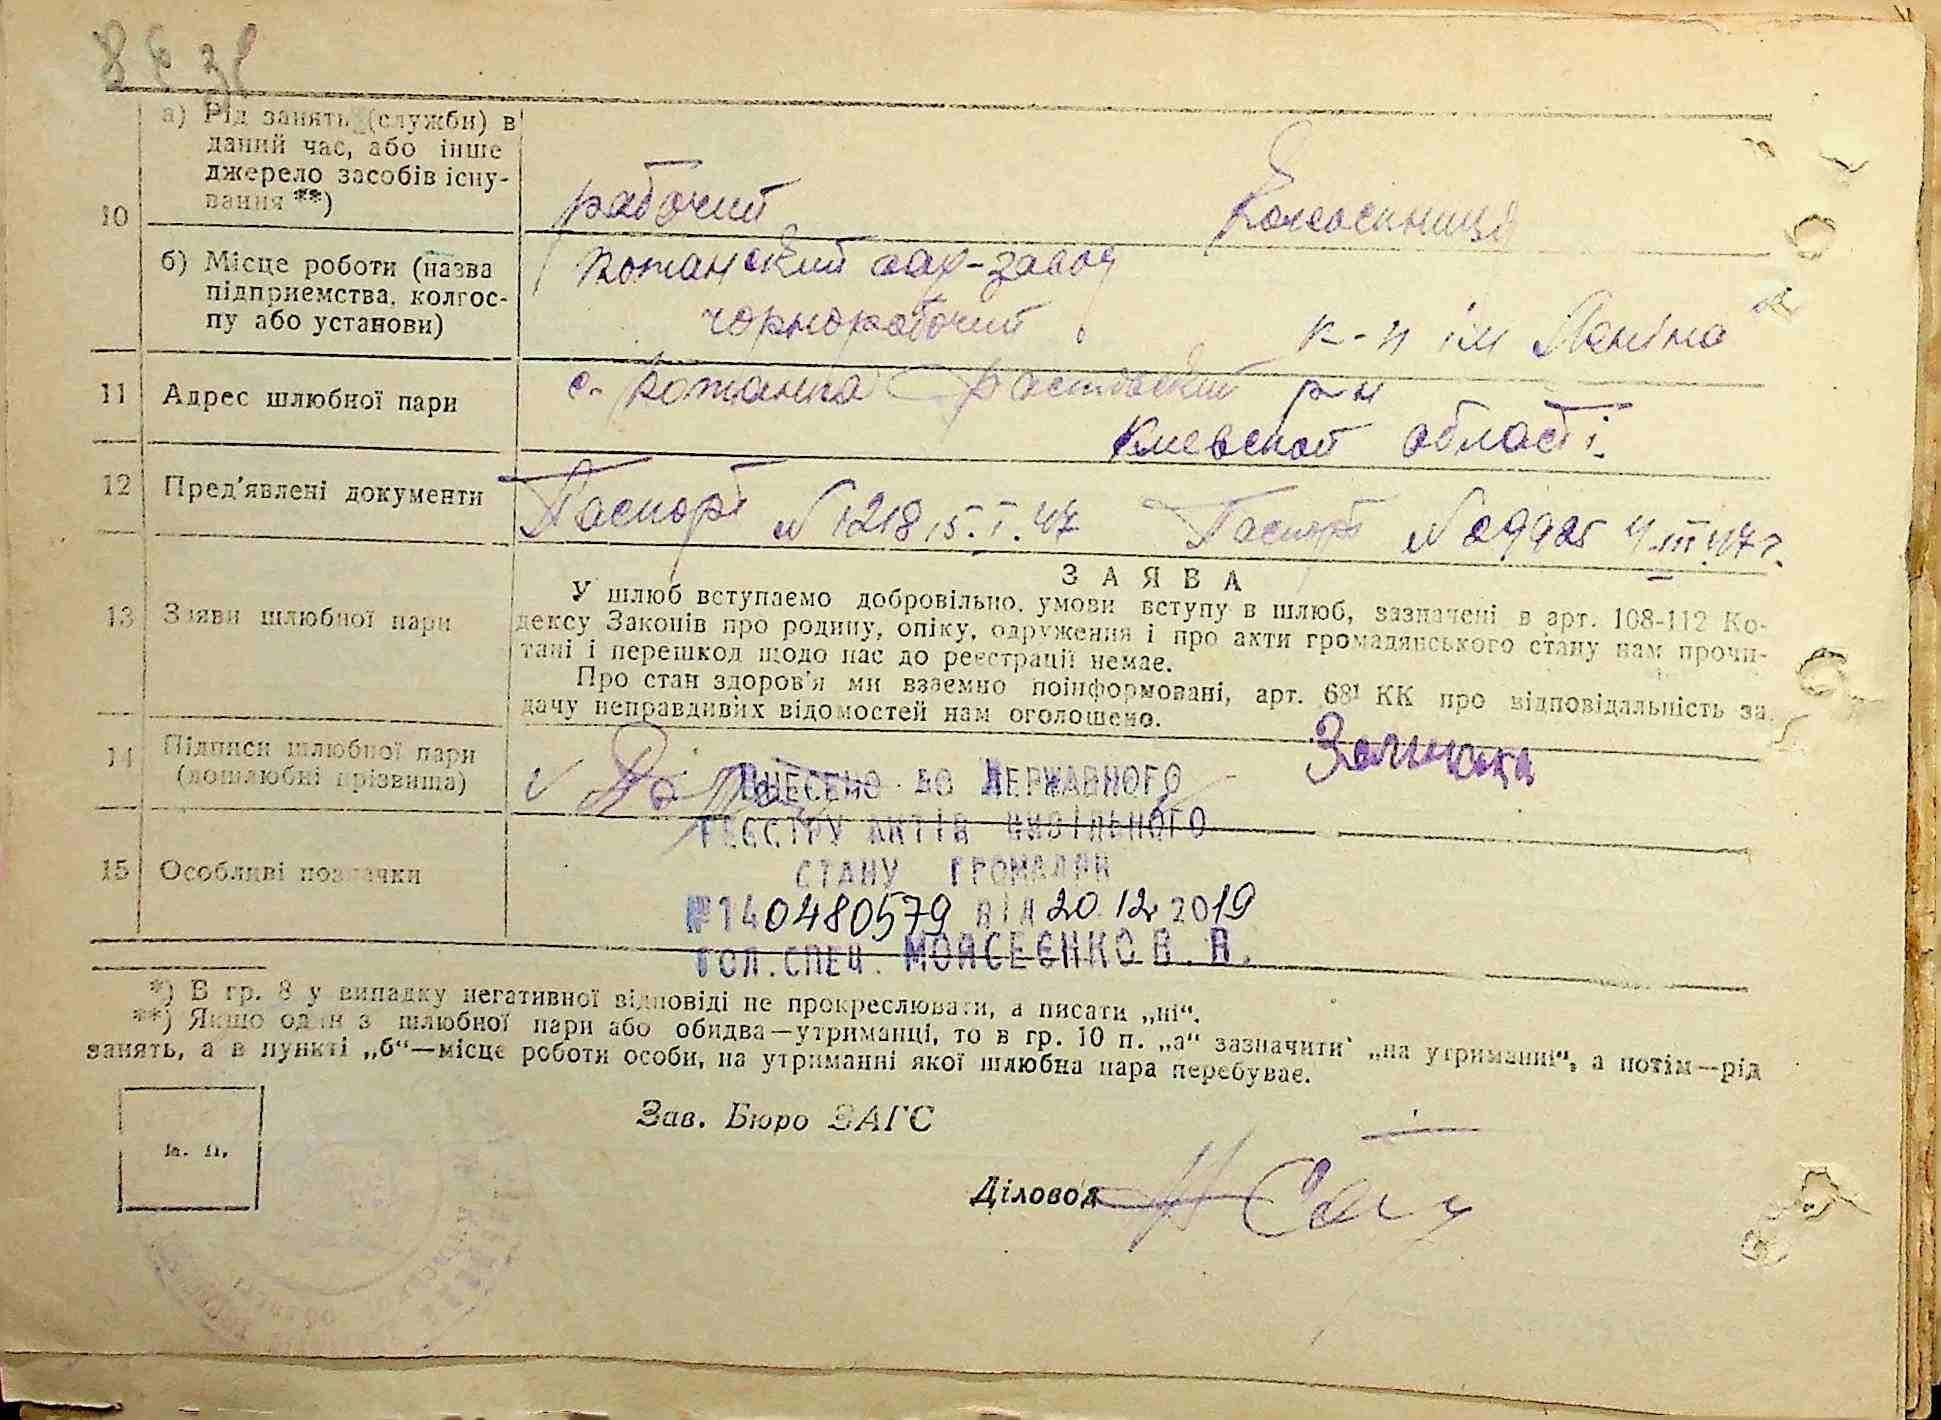 а) Рід занять (служби) в
даний час, або інше
джерело засобів існу-
вання **)
рабочий
10
б) Місце роботи (назва
підприємства, колгос-
пу або установи)
Кожанский сах-завод
чорнорабочий
к-п ім Леніна
11 Адрес шлюбної пари
с. Кожанка Фастовский р-н
Киевской області.
12 Пред'явлені документи
Паспорт № 1218 15.I.47 Паспорт № 29925 4.III.47 г.
З А Я В А
13 Заяви шлюбної пари
У шлюб вступаємо добровільно, умови вступу в шлюб, зазначені в арт. 108-112 Ко-
дексу Законів про родину, опіку, одруження і про акти громадянського стану нам прочи-
тані і перешкод щодо нас до реєстрації немає.
Про стан здоров'я ми взаємно поінформовані, арт. 68¹ КК про відповідальність за
дачу неправдивих відомостей нам оголошено.
14 Підписи шлюбної пари
(дошлюбні прізвища)
ВНЕСЕНО ДО ДЕРЖАВНОГО
РЕЄСТРУ АКТІВ ЦИВІЛЬНОГО
СТАНУ ГРОМАДЯН
15 Особливі позначки
№140480579 від 20.12.2019
ГОЛ.СПЕЦ. МОЙСЕЄНКО В.В.
*) В гр. 8 у випадку негативної відповіді не прокреслювати, а писати „ні“.
**) Якщо один з шлюбної пари або обидва—утриманці, то в гр. 10 п. „а“ зазначити „на утриманні“, а потім—рід
занять, а в пункті „б“—місце роботи особи, на утриманні якої шлюбна пара перебуває.
Зав. Бюро ЗАГС
М. П.
Діловод